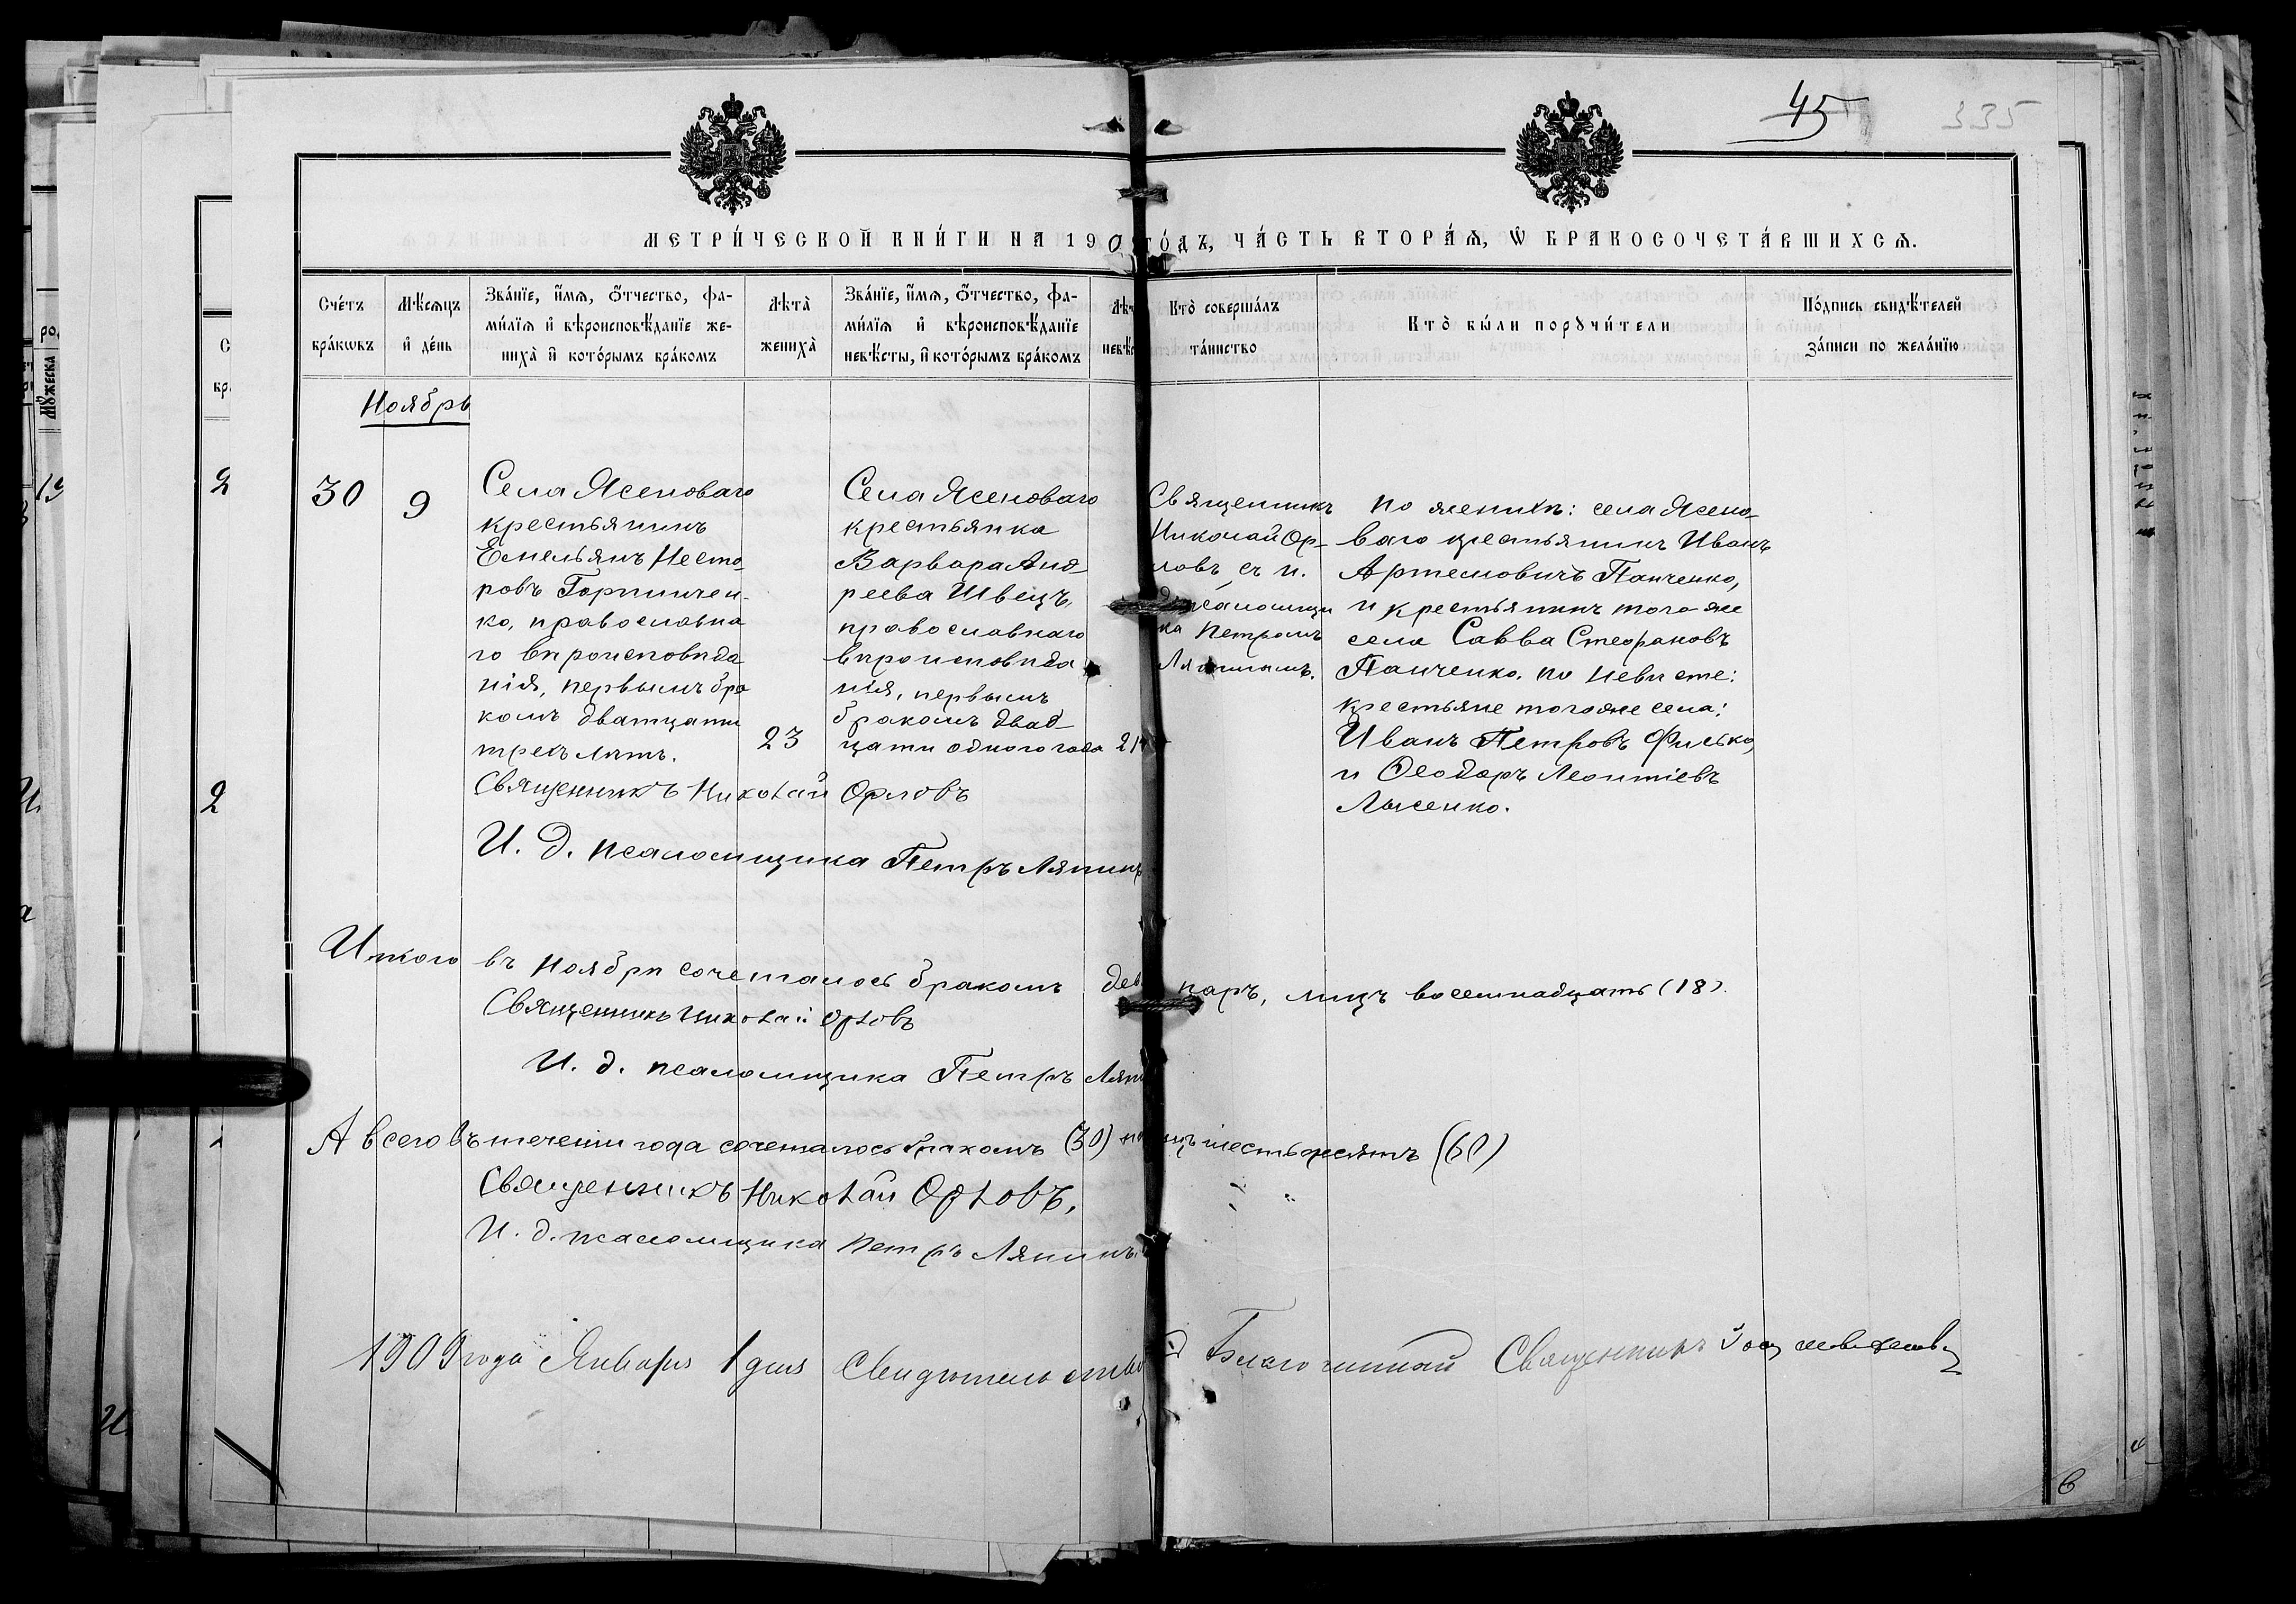 45
335
МЕТРИ́ЧЕСКОЙ КНИ́ГИ НА 190 ГО́ДЪ, ЧА́СТЬ ВТОРА́Я, Ѽ БРАКОСОЧЕТА́ВШИХСЯ.
Сче́тъ бра́кѡвъ
Мѣ́сѧцъ и҆ де́нь
Зва́нїе, и҆́мѧ, ѻ҆́тчество, фа-
ми́лїѧ и҆ вѣроисповѣ́данїе же-
ниха̀ и҆ кото́рымъ бра́комъ
Лѣта̀ жениха̀
Зва́нїе, и҆́мѧ, ѻ҆́тчество, фа-
ми́лїѧ и҆ вѣроисповѣ́данїе
невѣ́сты, и҆ кото́рымъ бра́комъ
Кто̀ соверша́лъ
та́инство
Кто̀ бы́ли порꙋчи́тели
По́дпись свидѣ́телей
за́писи по жела́нїю
Ноябрь
30
9
Села Ясеноваго
крестьянинъ
Емельянъ Несто-
ровъ Горпинчен-
ко, православна
го вѣроисповѣда
нія, первымъ бра
комъ дватцати
трехъ лѣтъ.
23
Села Ясеноваго
крестьянка
Варвара Анд-
реева Швецъ,
православнаго
вѣроисповѣда
нія, первымъ
бракомъ двад-
цати одного года
21
Священникъ
Николай Ор-
ловъ съ и.
д. псаломщи
ка Петромъ
Ляпинымъ.
По женихѣ: села Ясено-
ваго крестьянинъ Иванъ
Артемовичъ Панченко,
и крестьянинъ того-же
села Савва Стефановъ
Панченко. По невѣсте:
крестьяне того же села:
Иванъ Петровъ Фисько,
и Ѳеодоръ Леонтіевъ
Лысенко.
Священникъ Николай Орловъ
И. д. псаломщика Петръ Ляпинъ
Итого въ Ноябрѣ сочеталось бракомъ дев паръ, лицъ восемнадцать (18).
Священникъ Николай Орловъ
И. д. псаломщика Петръ Ляпи
А всего въ течении года сочеталось бракомъ (30) шестьдесятъ (60)
Священникъ Николай Орловъ.
И. д. псаломщика Петръ Ляпинъ.
1909 года Января 1 дня Свидѣтельство Благочинный Священникъ